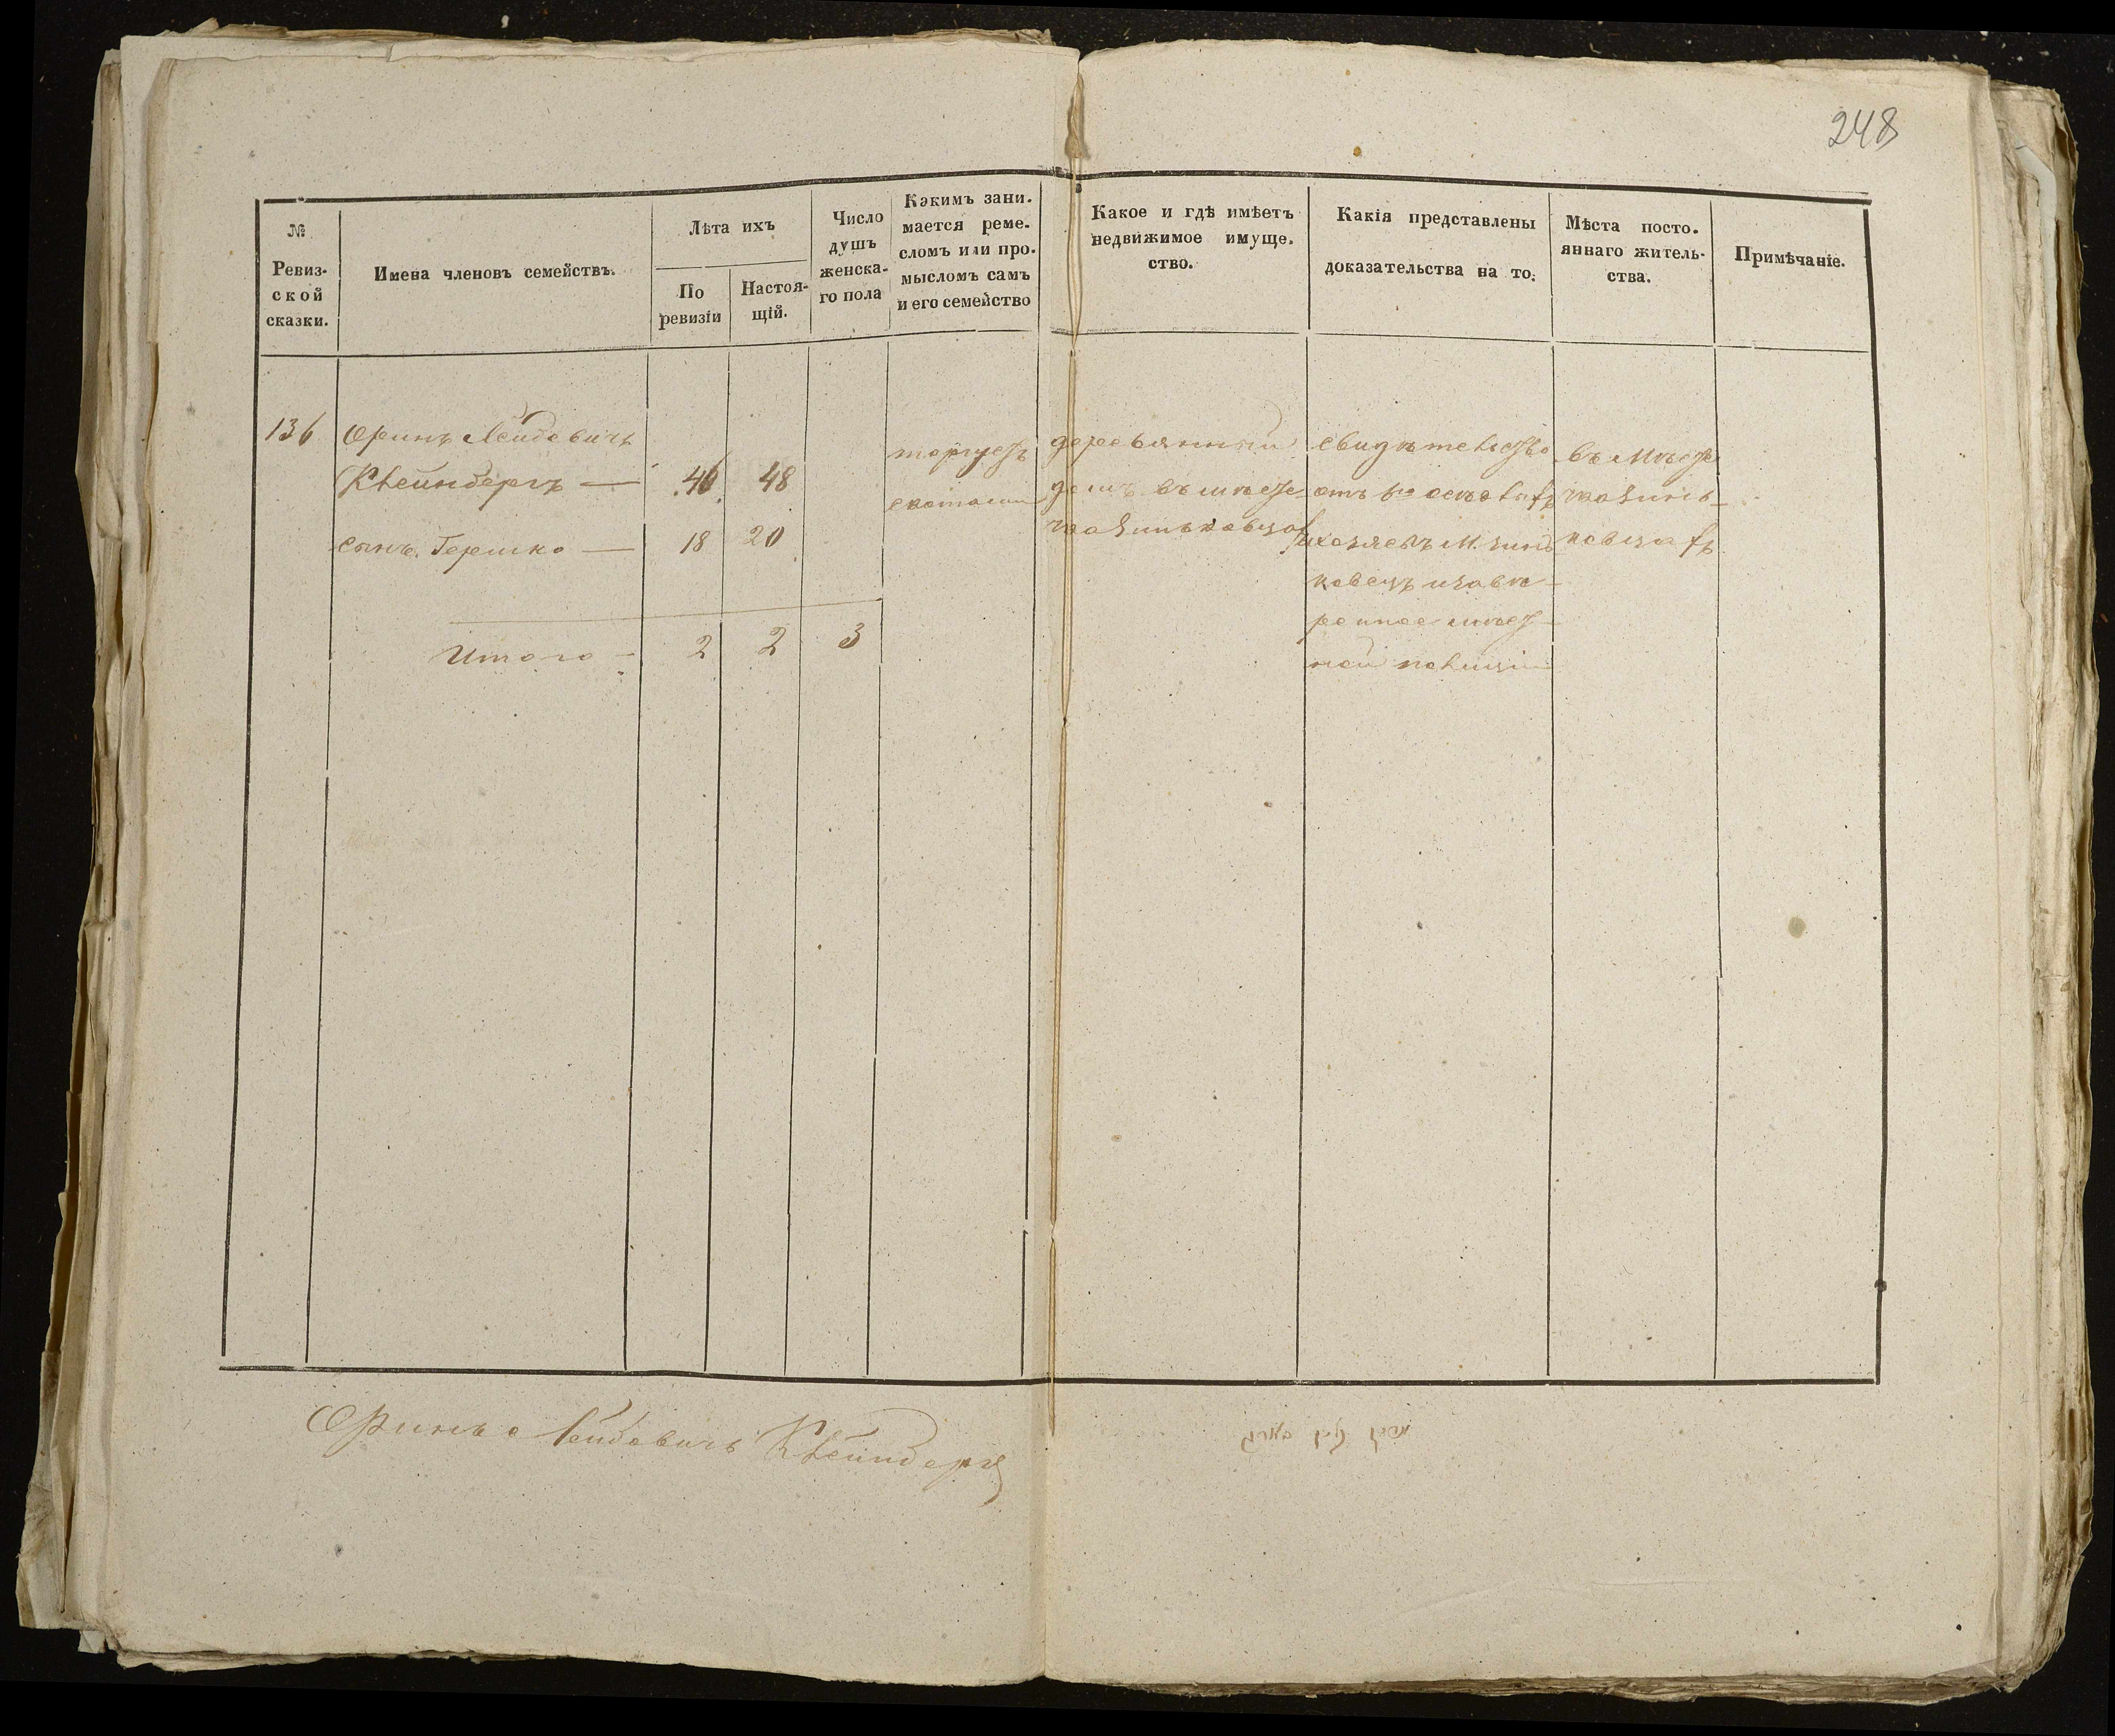 248
№
Ревиз-
ской
сказки.
Имена членовъ семействъ.
Лѣта ихъ
По
ревизіи
Настоя-
щій.
Число
душъ
женска-
го пола
Какимъ зани-
мается реме-
сломъ или про-
мысломъ самъ
и его семейство
Какое и гдѣ имѣетъ
недвижимое имуще-
ство.
Какія представлены
доказательства на то.
Мѣста посто-
яннаго житель-
ства.
Примѣчаніе.
136
Лейбовичъ
Клейнбергъ — 46 48
сынъ Гершко — 18 20
Итого — 2 2 3
торгуетъ
скотомъ
деревянный
домъ въ мѣсте-
чка Зиньковцах
свидѣтельство
отъ
хозяевъ М. Зинь
ковецъ изавѣ-
ренное мѣст-
ной полиціи
въ Мѣсте
чка Зинь-
ковцахъ
Лейбовичъ Клейнбергъ